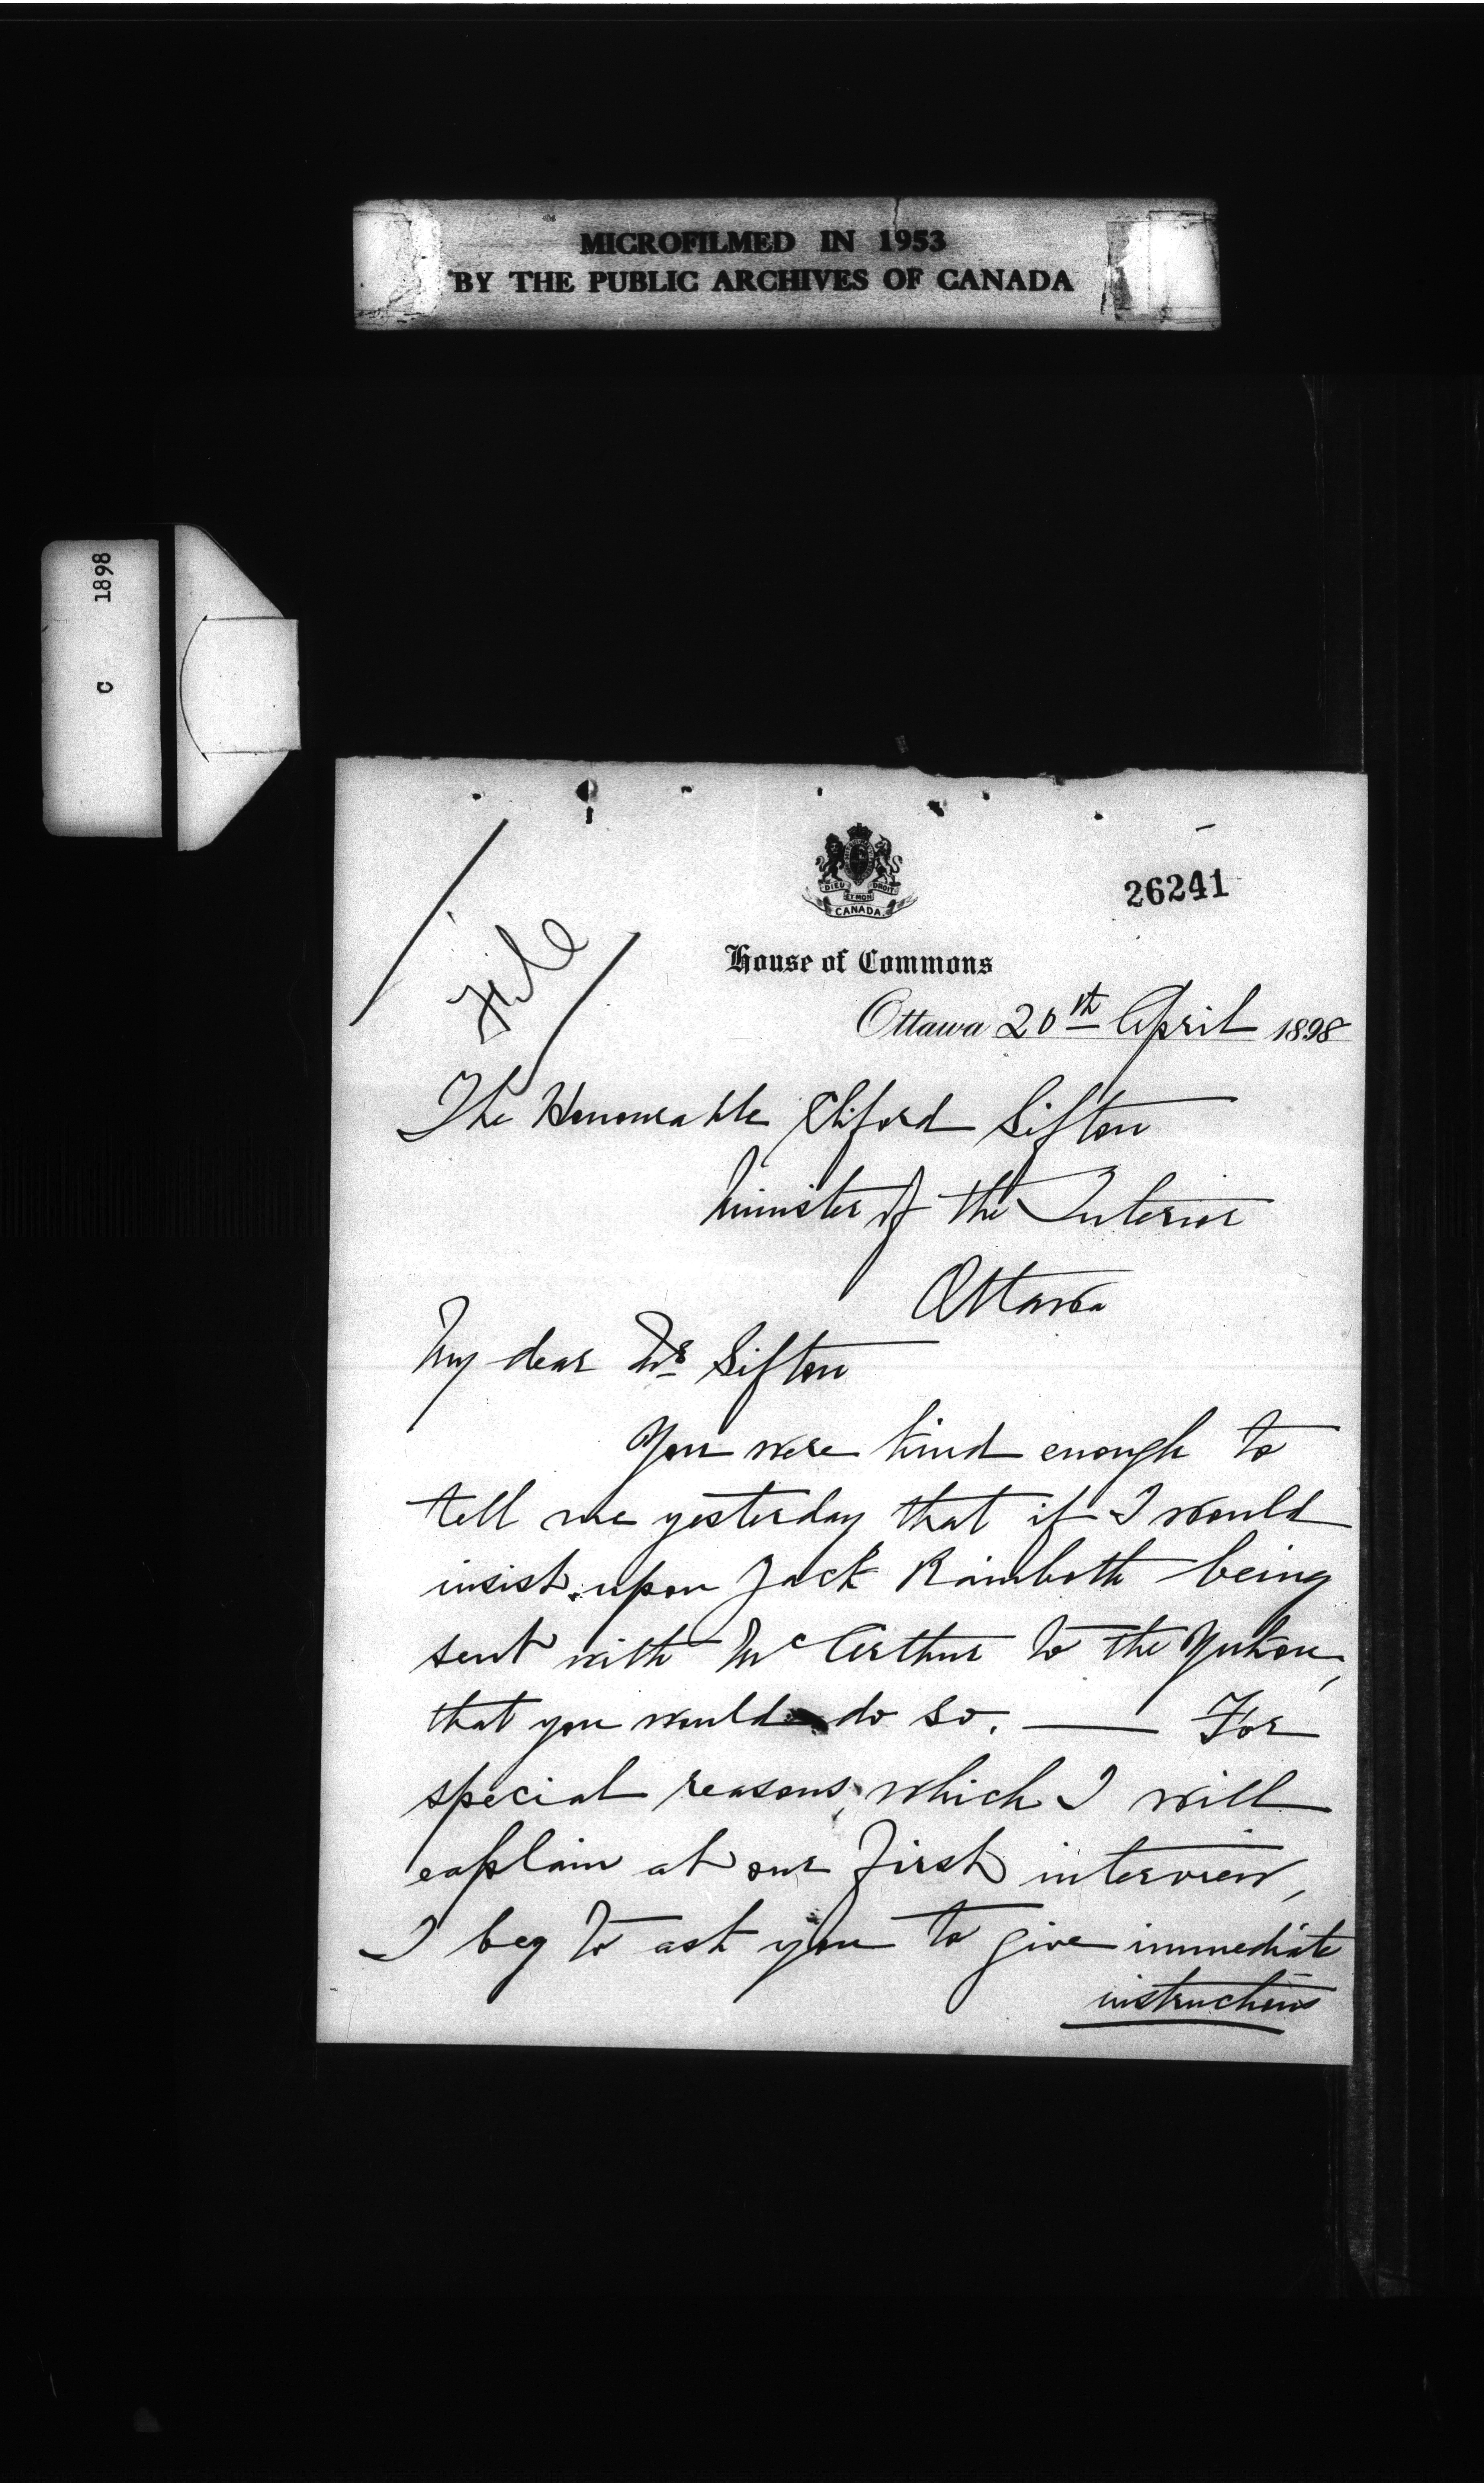 MICROFILMED IN 1953
BY THE PUBLIC ARCHIVES OF CANADA
C 1898
DIEU ET MON DROIT
CANADA
26241
File
House of Commons
Ottawa 20th April 1898
The Honourable Cliford Sifton
Minister of the Interior
Ottawa
My dear Mr Sifton
You were kind enough to
tell me yesterday that if I would
insist upon Jack Rainboth being
sent with McArthur to the Yukon,
that you would do so. — For
special reasons, which I will
explain at our first interview,
I beg to ask you to give immediate
instructions